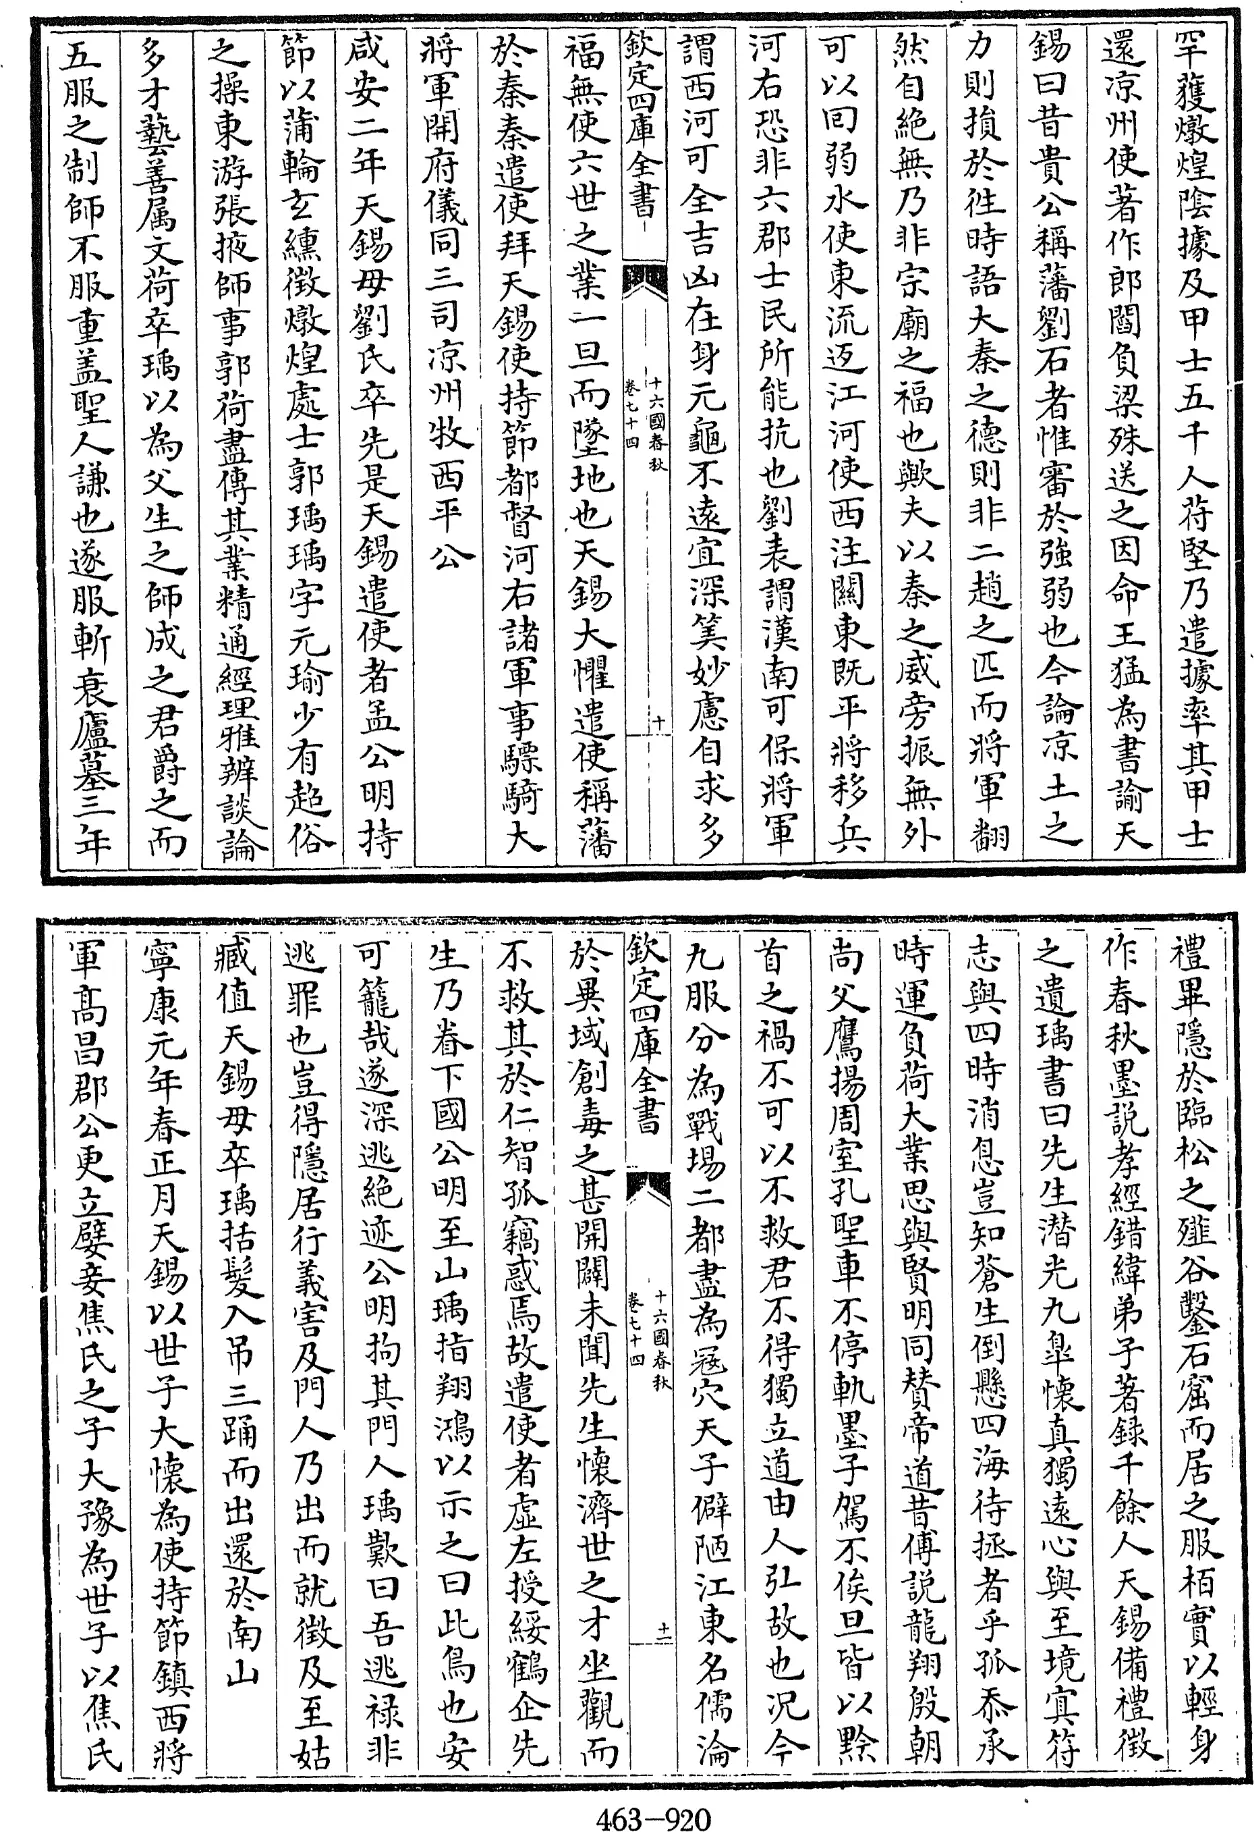 罕獲燉煌陰據及甲士五千人苻堅乃遣據率其甲士
還凉州使著作郎閻負梁殊送之因命王猛為書諭天
錫曰昔貴公稱藩劉石者惟審於強弱也今論凉土之
力則損於徃時語大秦之德則非二趙之匹而將軍翻
然自絶無乃非宗廟之福也歟夫以秦之威旁振無外
可以回弱水使東流返江河使西注關東既平將移兵
河右恐非六郡士民所能抗也劉表謂漢南可保將軍
謂西河可全吉凶在身元龜不遠宜深筭妙慮自求多
欽定四庫全書
十六國春秋
卷七十四
十
福無使六世之業一旦而墜地也天錫大懼遣使稱藩
於秦秦遣使拜天錫使持節都督河右諸軍事驃騎大
將軍開府儀同三司凉州牧西平公
咸安二年天錫母劉氏卒先是天錫遣使者孟公明持
節以蒲輪玄纁徵燉煌處士郭瑀瑀字元瑜少有超俗
之操東游張掖師事郭荷盡傳其業精通經理雅辨談論
多才藝善属文荷卒瑀以為父生之師成之君爵之而
五服之制師不服重盖聖人謙也遂服斬衰廬墓三年
禮畢隱於臨松之薤谷鑿石窟而居之服栢實以輕身
作春秋墨説孝經錯緯弟子著録千餘人天錫備禮徵
之遺瑀書曰先生潛光九臯懷真獨遠心與至境冥符
志與四時消息豈知蒼生倒懸四海待拯者乎孤忝承
時運負荷大業思與賢明同賛帝道昔傅説龍翔殷朝
尚父鷹揚周室孔聖車不停軌墨子駕不俟旦皆以黔
首之禍不可以不救君不得獨立道由人弘故也况今
九服分為戰場二都盡為冦穴天子僻陋江東名儒淪
欽定四庫全書
十六國春秋
卷七十四
十一
於異域創毒之甚開闢未聞先生懷濟世之才坐觀而
不救其於仁智孤竊惑焉故遣使者虛左授綏鶴企先
生乃眷下國公明至山瑀指翔鴻以示之曰此鳥也安
可籠哉遂深逃絶迹公明拘其門人瑀歎曰吾逃禄非
逃罪也豈得隱居行義害及門人乃出而就徵及至姑
臧值天錫母卒瑀括髮入吊三踊而出還於南山
寧康元年春正月天錫以世子大懷為使持節鎮西將
軍髙昌郡公更立嬖妾焦氏之子大豫為世子以焦氏
463-920